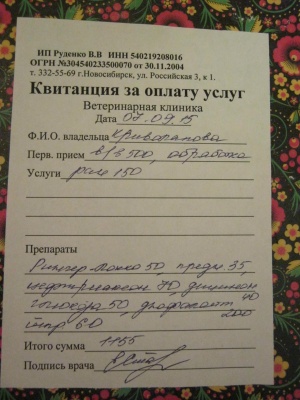 ИП Руденко В.В ИНН 540219208016
ОГРН №304540233500070 от 30.11.2004
т. 332-55-69 г.Новосибирск, ул. Российская 3, к 1.
Квитанция за оплату услуг
Ветеринарная клиника
Дата 07.09.15
Ф.И.О. владельца
Перв. прием в/з 500, обработка
Услуги 150
Препараты
Рингер-Локко 50, предн. 35,
цефтриаксон 70, дицинон 40
глюкоза 50, 200
60
Итого сумма 1155
Подпись врача